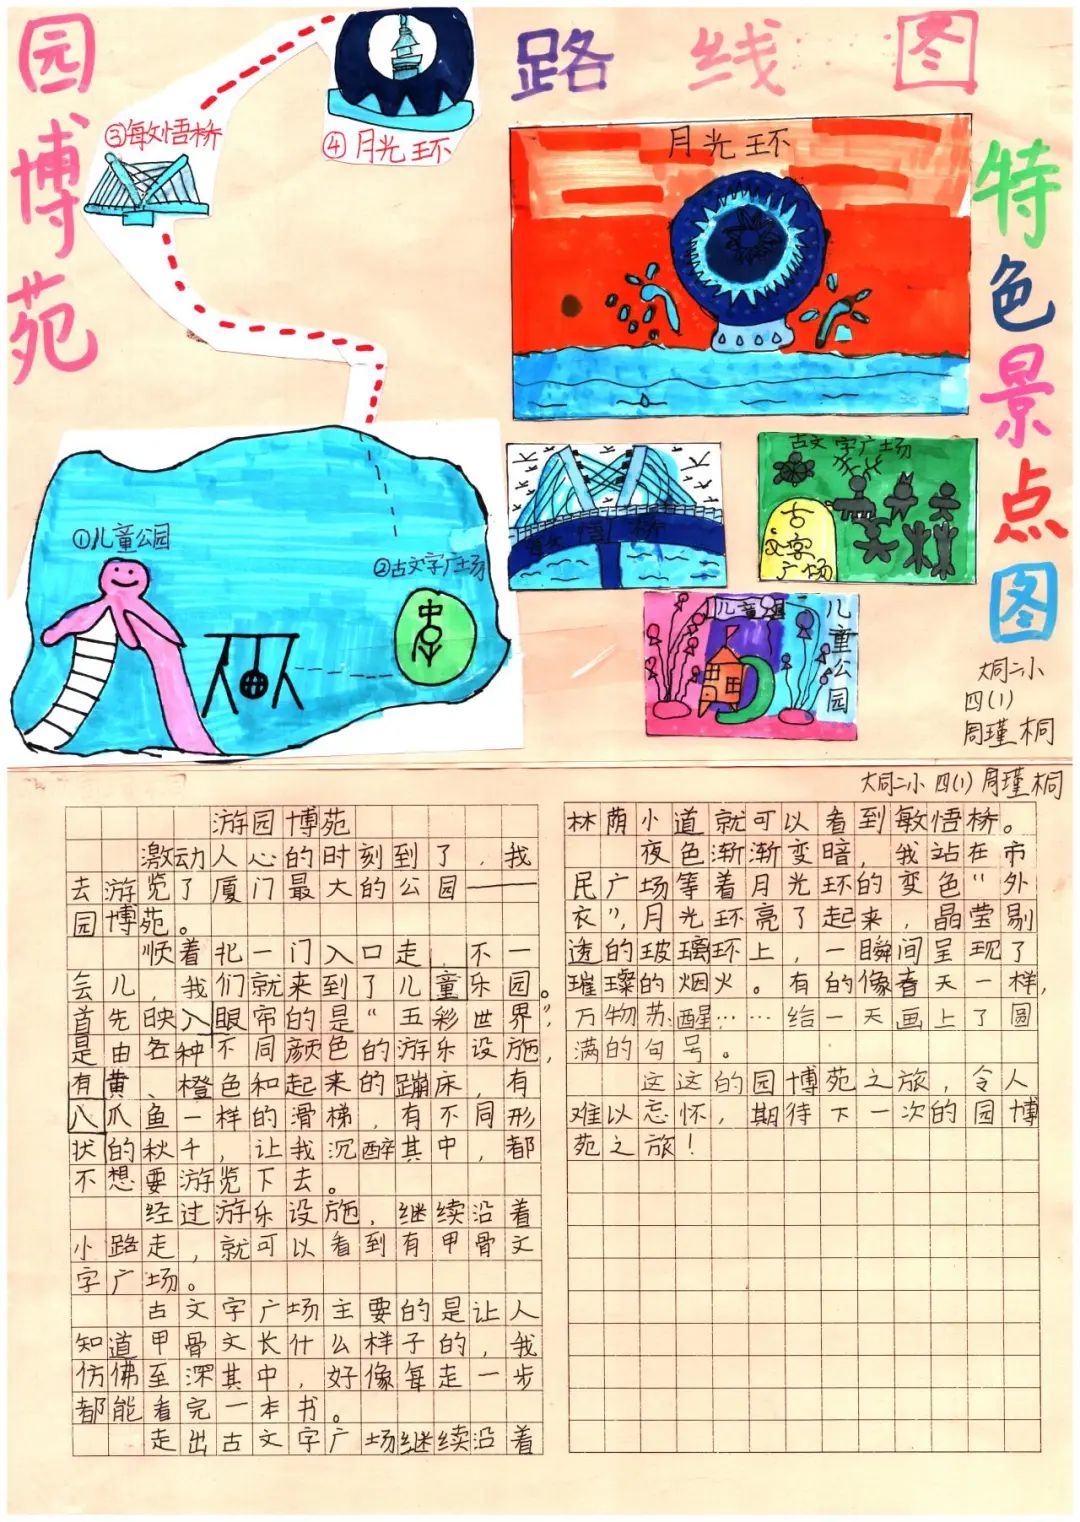 园博苑
路线图
特色景点图
③敏悟桥
④月光环
①儿童公园
②古文字广场
月光环
悟桥
古文字广场
古
文字
广场
儿童
儿童公园
大同二小
四(1)
周瑾桐
大同二小 四(1) 周瑾桐
游园博苑
激动人心的时刻到了，我
去游览了厦门最大的公园——
园博苑。
顺着北一门入口走，不一
会儿，我们就来到了儿童乐园。
首先映入眼帘的是“五彩世界”，
是由各种不同颜色的游乐设施，
有黄、橙色和起来的蹦床，有
八爪鱼一样的滑梯，有不同形
状的秋千，让我沉醉其中，都
不想要游览下去。
经过游乐设施，继续沿着
小路走，就可以看到有甲骨文
字广场。
古文字广场主要的是让人
知道甲骨文长什么样子的，我
仿佛至深其中，好像每走一步
都能看完一本书。
走出古文字广场继续沿着
林荫小道就可以看到敏悟桥。
夜色渐渐变暗，我站在市
民广场等着月光环的变色“外
衣”，月光环亮了起来，晶莹剔
透的玻璃环上，一瞬间呈现了
璀璨的烟火。有的像春天一样，
万物苏醒……给一天画上了圆
满的句号。
这这的园博苑之旅，令人
难以忘怀，期待下一次的园博
苑之旅！